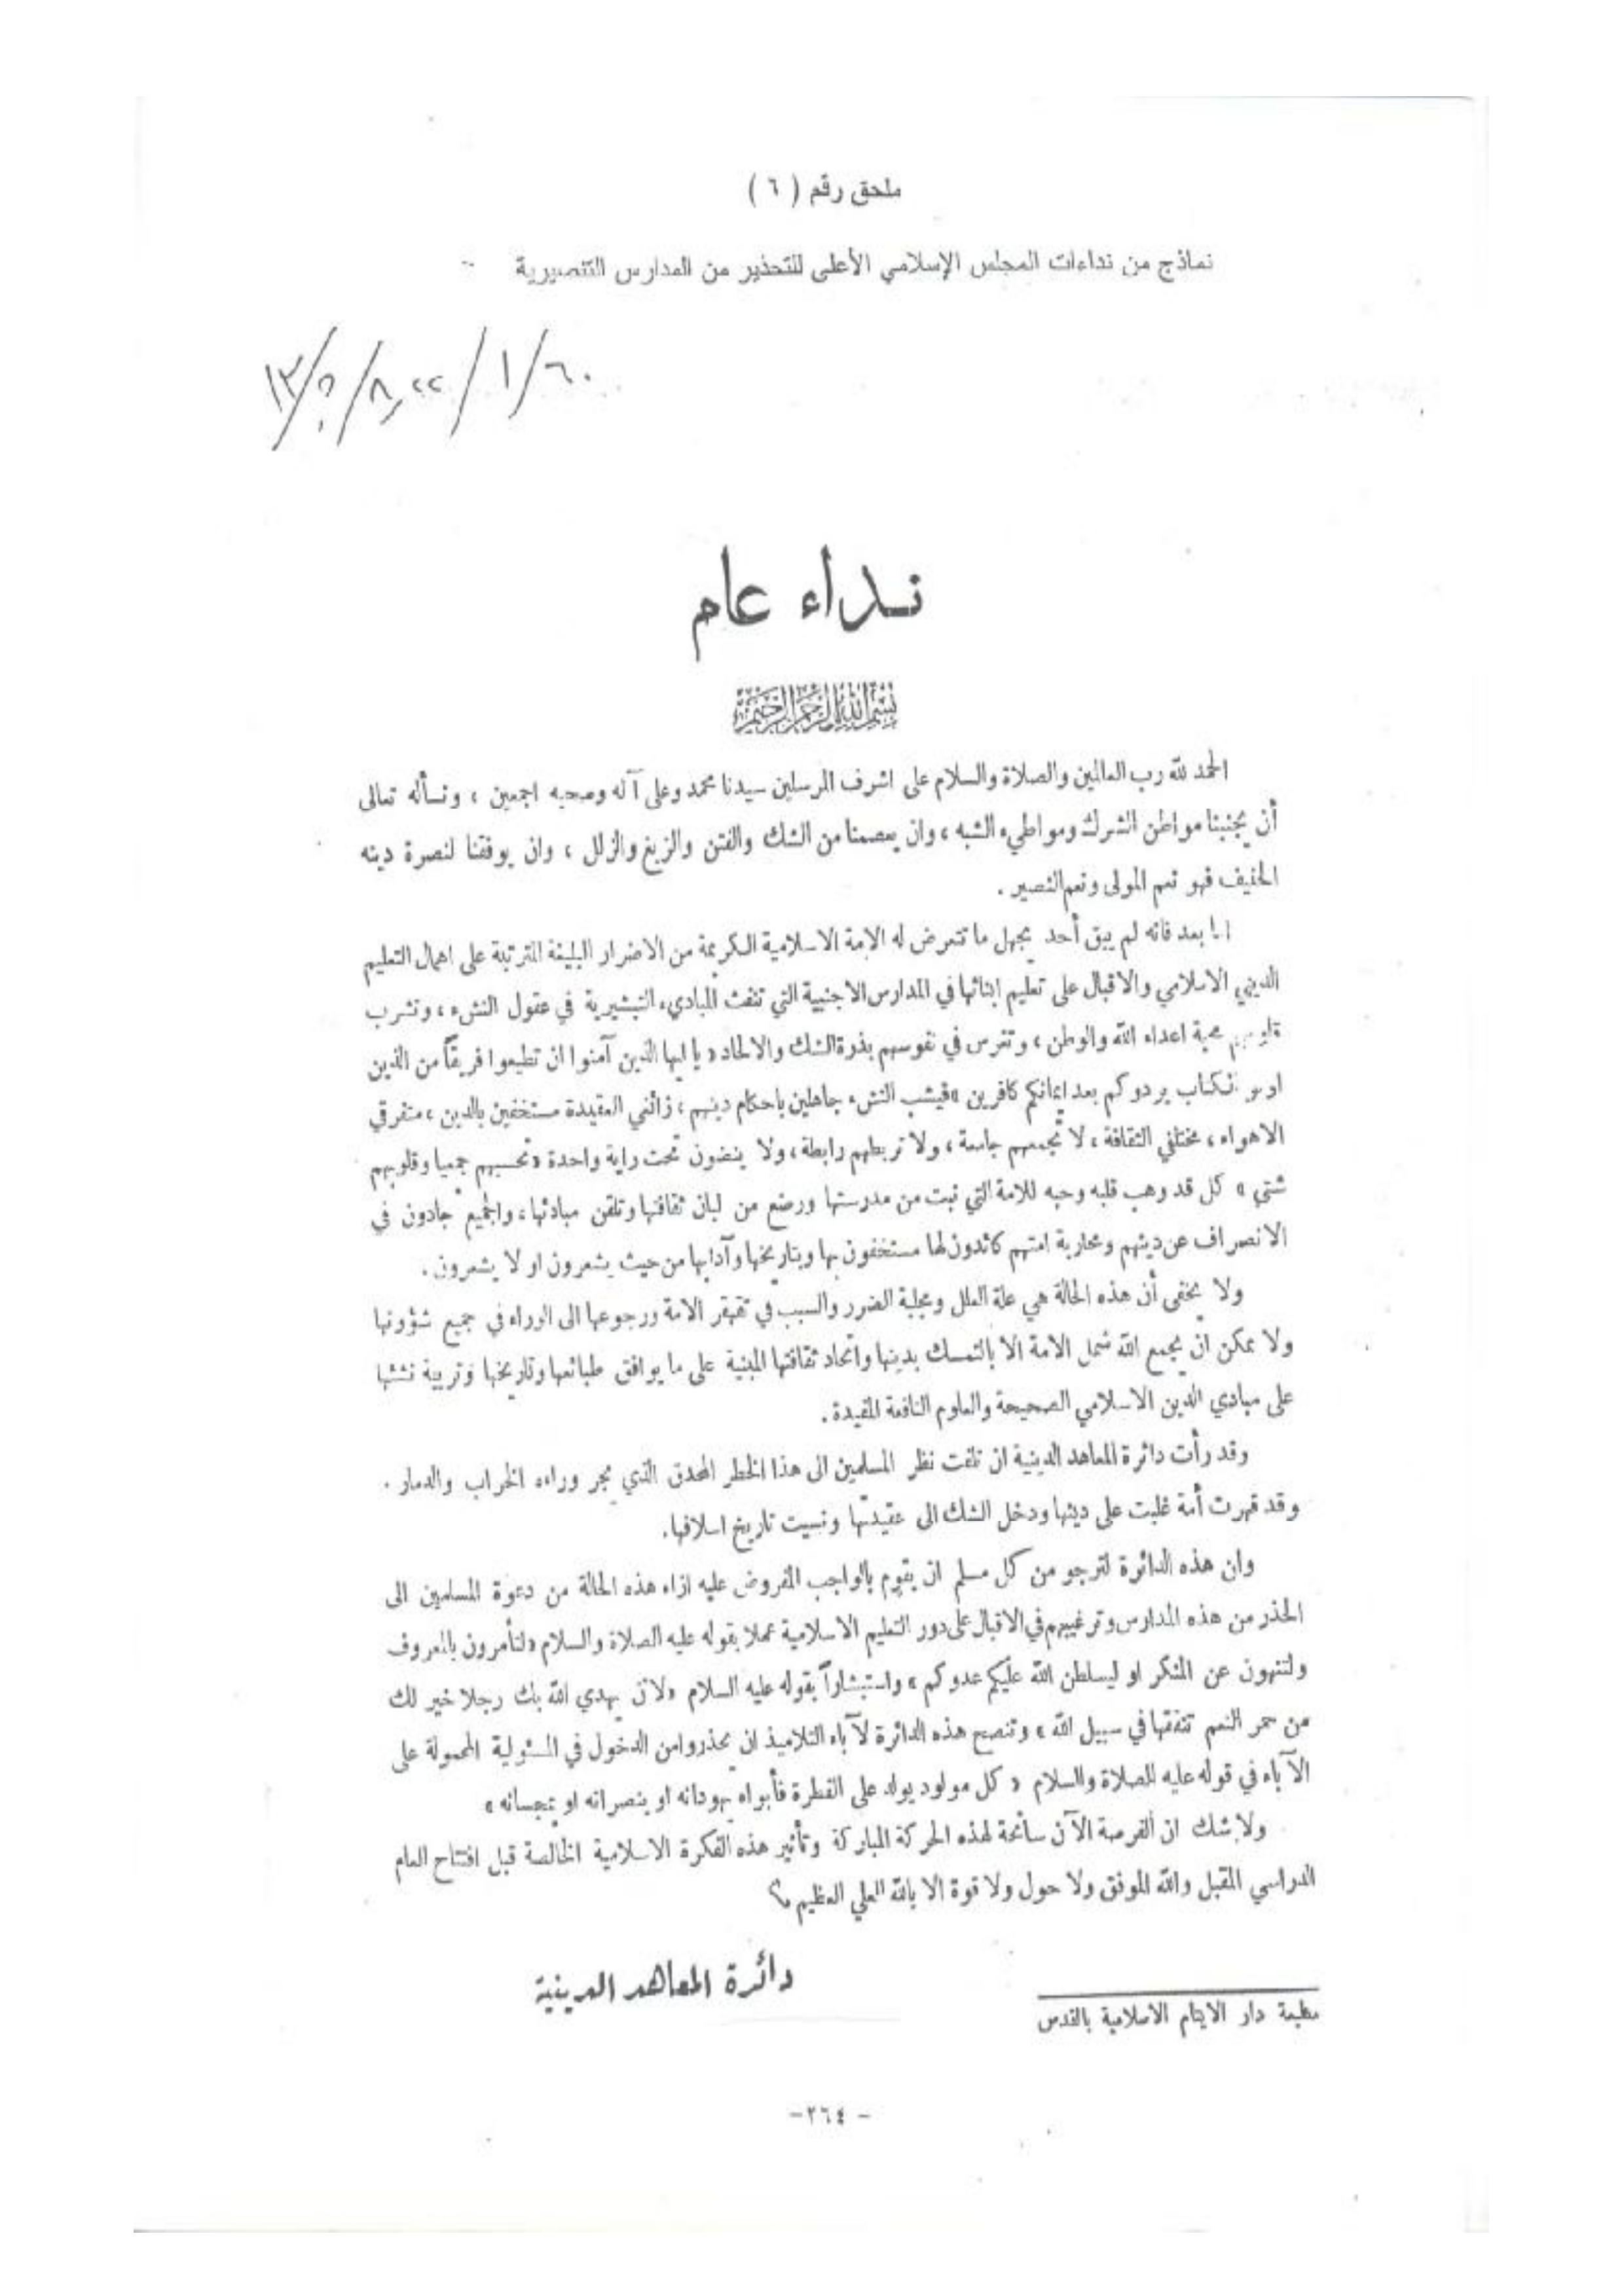 ملحق رقم ( ٦ )
نماذج من نداءات المجلس الإسلامي الأعلى للتحذير من المدارس التنصيرية
نداء عام
بسم الله الرحمن الرحيم
الحمد لله رب العالمين والصلاة والسلام على اشرف المرسلين سيدنا محمد وعلى آله وصحبه اجمعين ، ونسأله تعالى
أن يجنبنا مواطن الشرك ومواطيء الشبه ، وان يعصمنا من الشك والفتن والزيغ والزلل ، وان يوفقنا لنصرة دينه
الحنيف فهو نعم المولى ونعم النصير .
اما بعد فانه لم يبق أحد يجهل ما تتعرض له الامة الاسلامية الكريمة من الاضرار البليغة المترتبة على اهمال التعليم
الديني الاسلامي والاقبال على تعليم ابنائها في المدارس الاجنبية التي تنفث المبادىء التبشيرية في عقول النشء ، وتشرب
قلوبهم محبة اعداء الله والوطن ، وتغرس في نفوسهم بذرة الشك والالحاد « يا ايها الذين آمنوا ان تطيعوا فريقاً من الذين
اوتوا الكتاب يردوكم بعد ايمانكم كافرين » فيشب النشء جاهلين باحكام دينهم ، زائفي العقيدة مستخفين بالدين ، متفرقي
الاهواء ، مختلفي الثقافة ، لا تجمعهم جامعة ، ولا تربطهم رابطة ، ولا ينضون تحت راية واحدة « تحسبهم جميعا وقلوبهم
شتى » كل قد وهب قلبه وحبه للامة التي نبت من مدرستها ورضع من لبان ثقافتها وتلقن مبادئها ، والجميع جادون في
الانصراف عن دينهم ومحاربة امتهم كائدون لها مستخفون بها وبتاريخها وآدابها من حيث يشعرون او لا يشعرون .
ولا يخفى أن هذه الحالة هي علة العلل ومجلبة الضرر والسبب في تقهقر الامة ورجوعها الى الوراء في جميع شؤونها
ولا يمكن ان يجمع الله شمل الامة الا بالتمسك بدينها واتحاد ثقافتها المبنية على ما يوافق طبائعها وتاريخها وتربية نشئها
على مبادي الدين الاسلامي الصحيحة والعلوم النافعة المفيدة .
وقد رأت دائرة المعاهد الدينية ان تلفت نظر المسلمين الى هذا الخطر المحدق الذي يجر وراءه الخراب والدمار .
وقد قهرت أمة غلبت على دينها ودخل الشك الى عقيدتها ونسيت تاريخ اسلافها .
وان هذه الدائرة لترجو من كل مسلم ان يقوم بالواجب المفروض عليه ازاء هذه الحالة من دعوة المسلمين الى
الحذر من هذه المدارس وترغيبهم في الاقبال على دور التعليم الاسلامية عملا بقوله عليه الصلاة والسلام « لتأمرون بالمعروف
ولتنهون عن المنكر او ليسلطن الله عليكم عدوكم » واستبشاراً بقوله عليه السلام « لان يهدي الله بك رجلا خير لك
من حمر النعم تنفقها في سبيل الله » وتنصح هذه الدائرة لآباء التلاميذ ان يحذروا من الدخول في المسئولية المحمولة على
الآباء في قوله عليه الصلاة والسلام « كل مولود يولد على الفطرة فأبواه يهودانه او ينصرانه او يمجسانه »
ولا شك ان الفرصة الآن سانحة لهذه الحركة المباركة وتأثير هذه الفكرة الاسلامية الخالصة قبل افتتاح العام
الدراسي المقبل والله الموفق ولا حول ولا قوة الا بالله العلي العظيم
دائرة المعاهد الدينية
مطبعة دار الايتام الاسلامية بالقدس
- ٢٦٤-